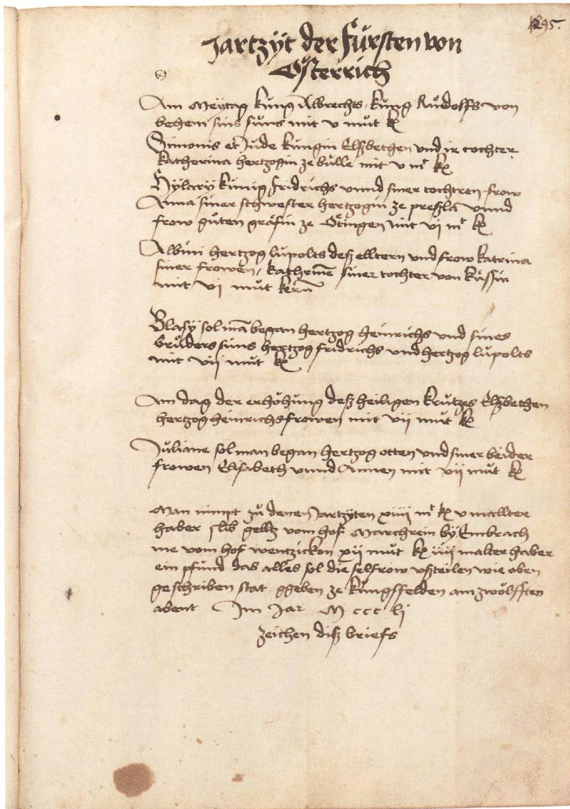 295.
Jartzÿt der Fürsten von
Österrich
Am Meÿtag küng Albrechts küng Rüdolffs von
behem sins suns mit v müt k
Simonis et Jude küngin Elszbethen vnd ir tochter
katherina hertzogin ze bulle mit v mt k
Hÿlarÿ künig fridrichs vnnd siner tochtren frow
Anna siner schwester hertzogin ze preszla vnnd
frow güten gräfin ze Ötingen mit vi mt k
Albini hertzog lüpolts desz elltern vnd frow katrina
siner frowen, katherinē siner tochter von küssin
mit vi müt kern
Blasÿ sol mā began hertzog heinrichs vnd sines
brüders suns hertzog fridrichs vnd hertzog lüpolts
mit vii müt k
Am dag der erhöhung desz heiligen krützes Elszbethen
hertzog heinrichs frowen mit vij müt k
Juliane sol man began hertzog otten vnd siner beider
frowen Elisabeth vnnd Annen mit vii müt k
Man nimpt zü denen Jartzyten xiiii mt k v mallter
haber j lib gellz vom hof Marchrein bÿ Embrach
me vom hof wentzickon xii müt k iiii malter haber
ein pfund das alles sol die selfrow vszteilen wie oben
geschriben stat ggeben ze küngsfelden am zwölfften
abent Jm Jar M ccc lj
zeichen disz briefs